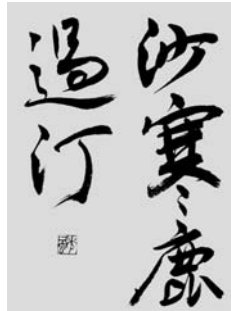 沙寒鹿
過汀